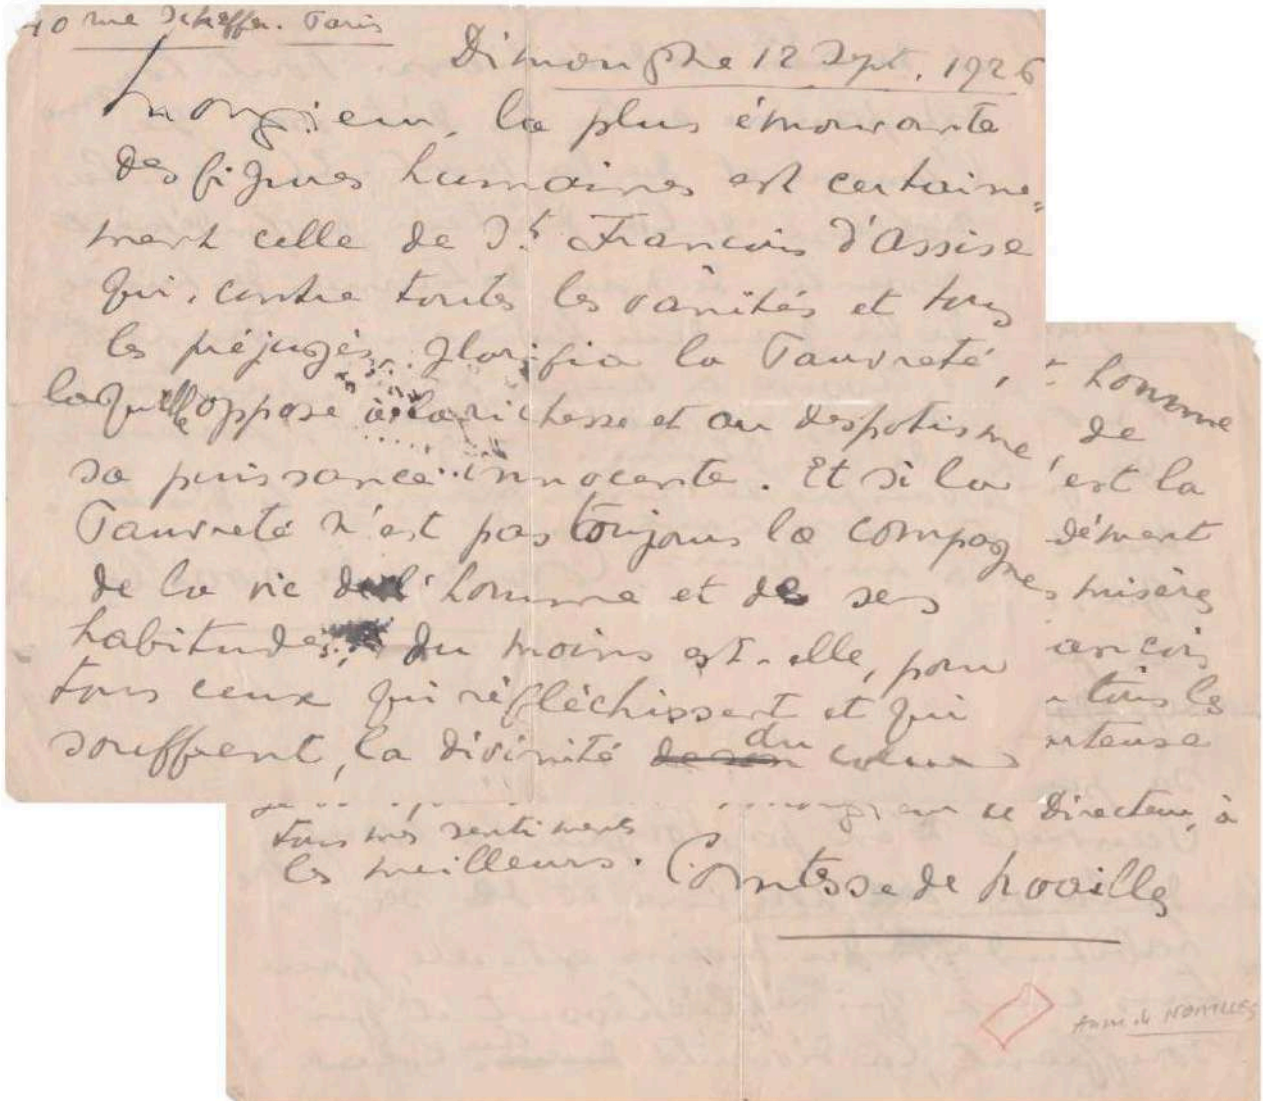 40 rue Scheffer. Paris
Dimanche 12 Sept. 1926
Monsieur, la plus émouvante
des figures humaines est certaine=
ment celle de St François d'Assise
qui, contre toutes les vanités et tous
les préjugés, glorifia la Pauvreté,
laquelle oppose à la richesse et au despotisme
sa puissance innocente. Et si la
Pauvreté n'est pas toujours la compagne
de la vie de l'homme et de ses
habitudes, du moins est-elle, pour
tous ceux qui réfléchissent et qui
souffrent, la divinité du cœur
homme
de
'est la
dément
misères
ançois
tous les
rteuse
le Directeur, à
tous mes sentiments
les meilleurs.
Comtesse de Noailles
Anna de NOAILLES